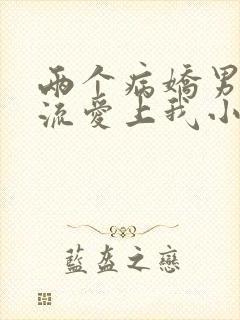 两个病娇男
流爱上我小
蓝盔之恋